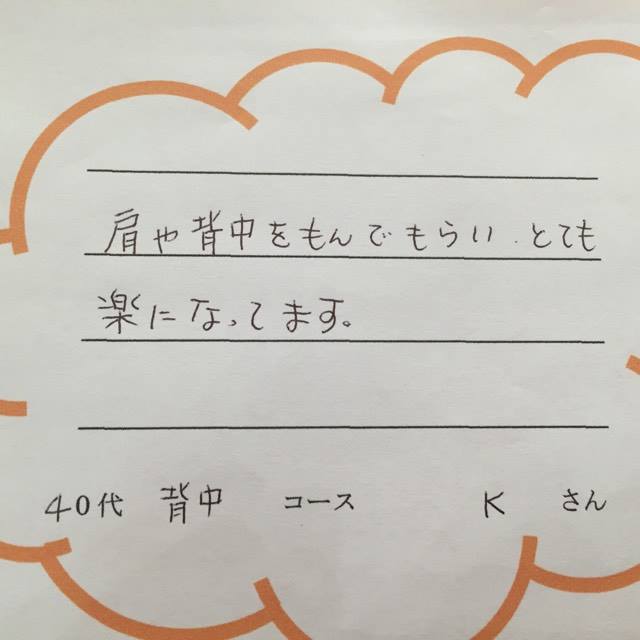 肩や背中をもんでもらい、とても
楽になってます。
40代 背中 コース K さん